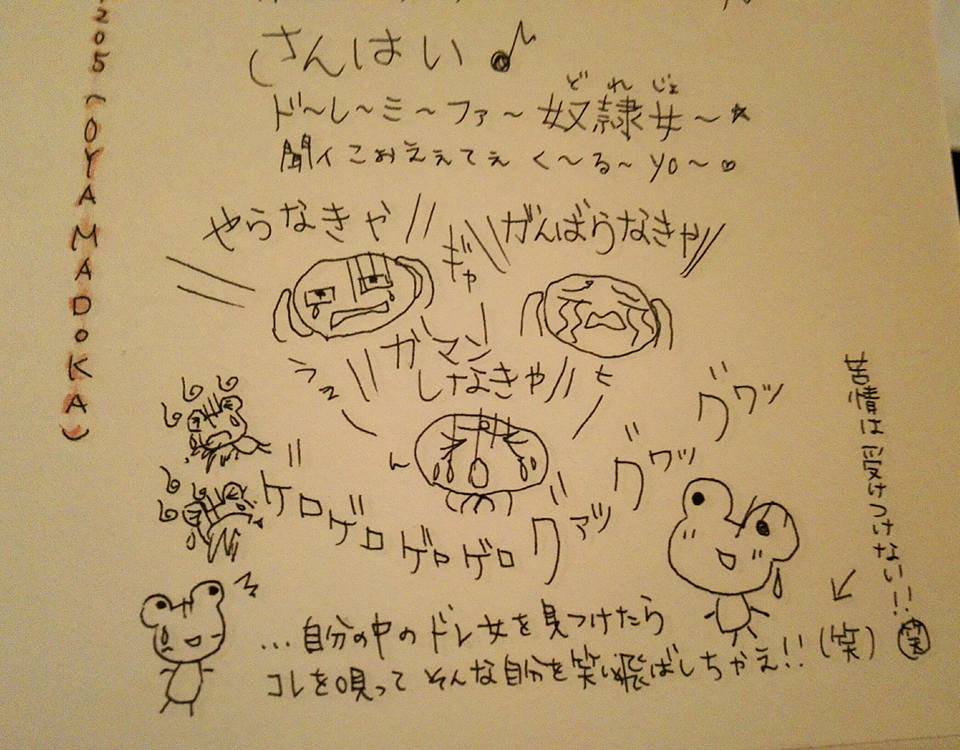 さんはい♪
ど れ じょ
ド〜レ〜ミ〜ファ〜奴隷女〜☆
聞イこおえぇてぇ く〜る〜yo〜♡
やらなきゃ//
がんばらなきゃ//
ギャ
ガマン
しなきゃ//
ゲロゲロゲロゲロ
グァッ グワッ グワッ
...自分の中のドレ女を見つけたら
コレを唄って そんな自分を笑い飛ばしちゃえ!!(笑)
苦情は受けつけない!!(笑)
205(OYAMADOKA)